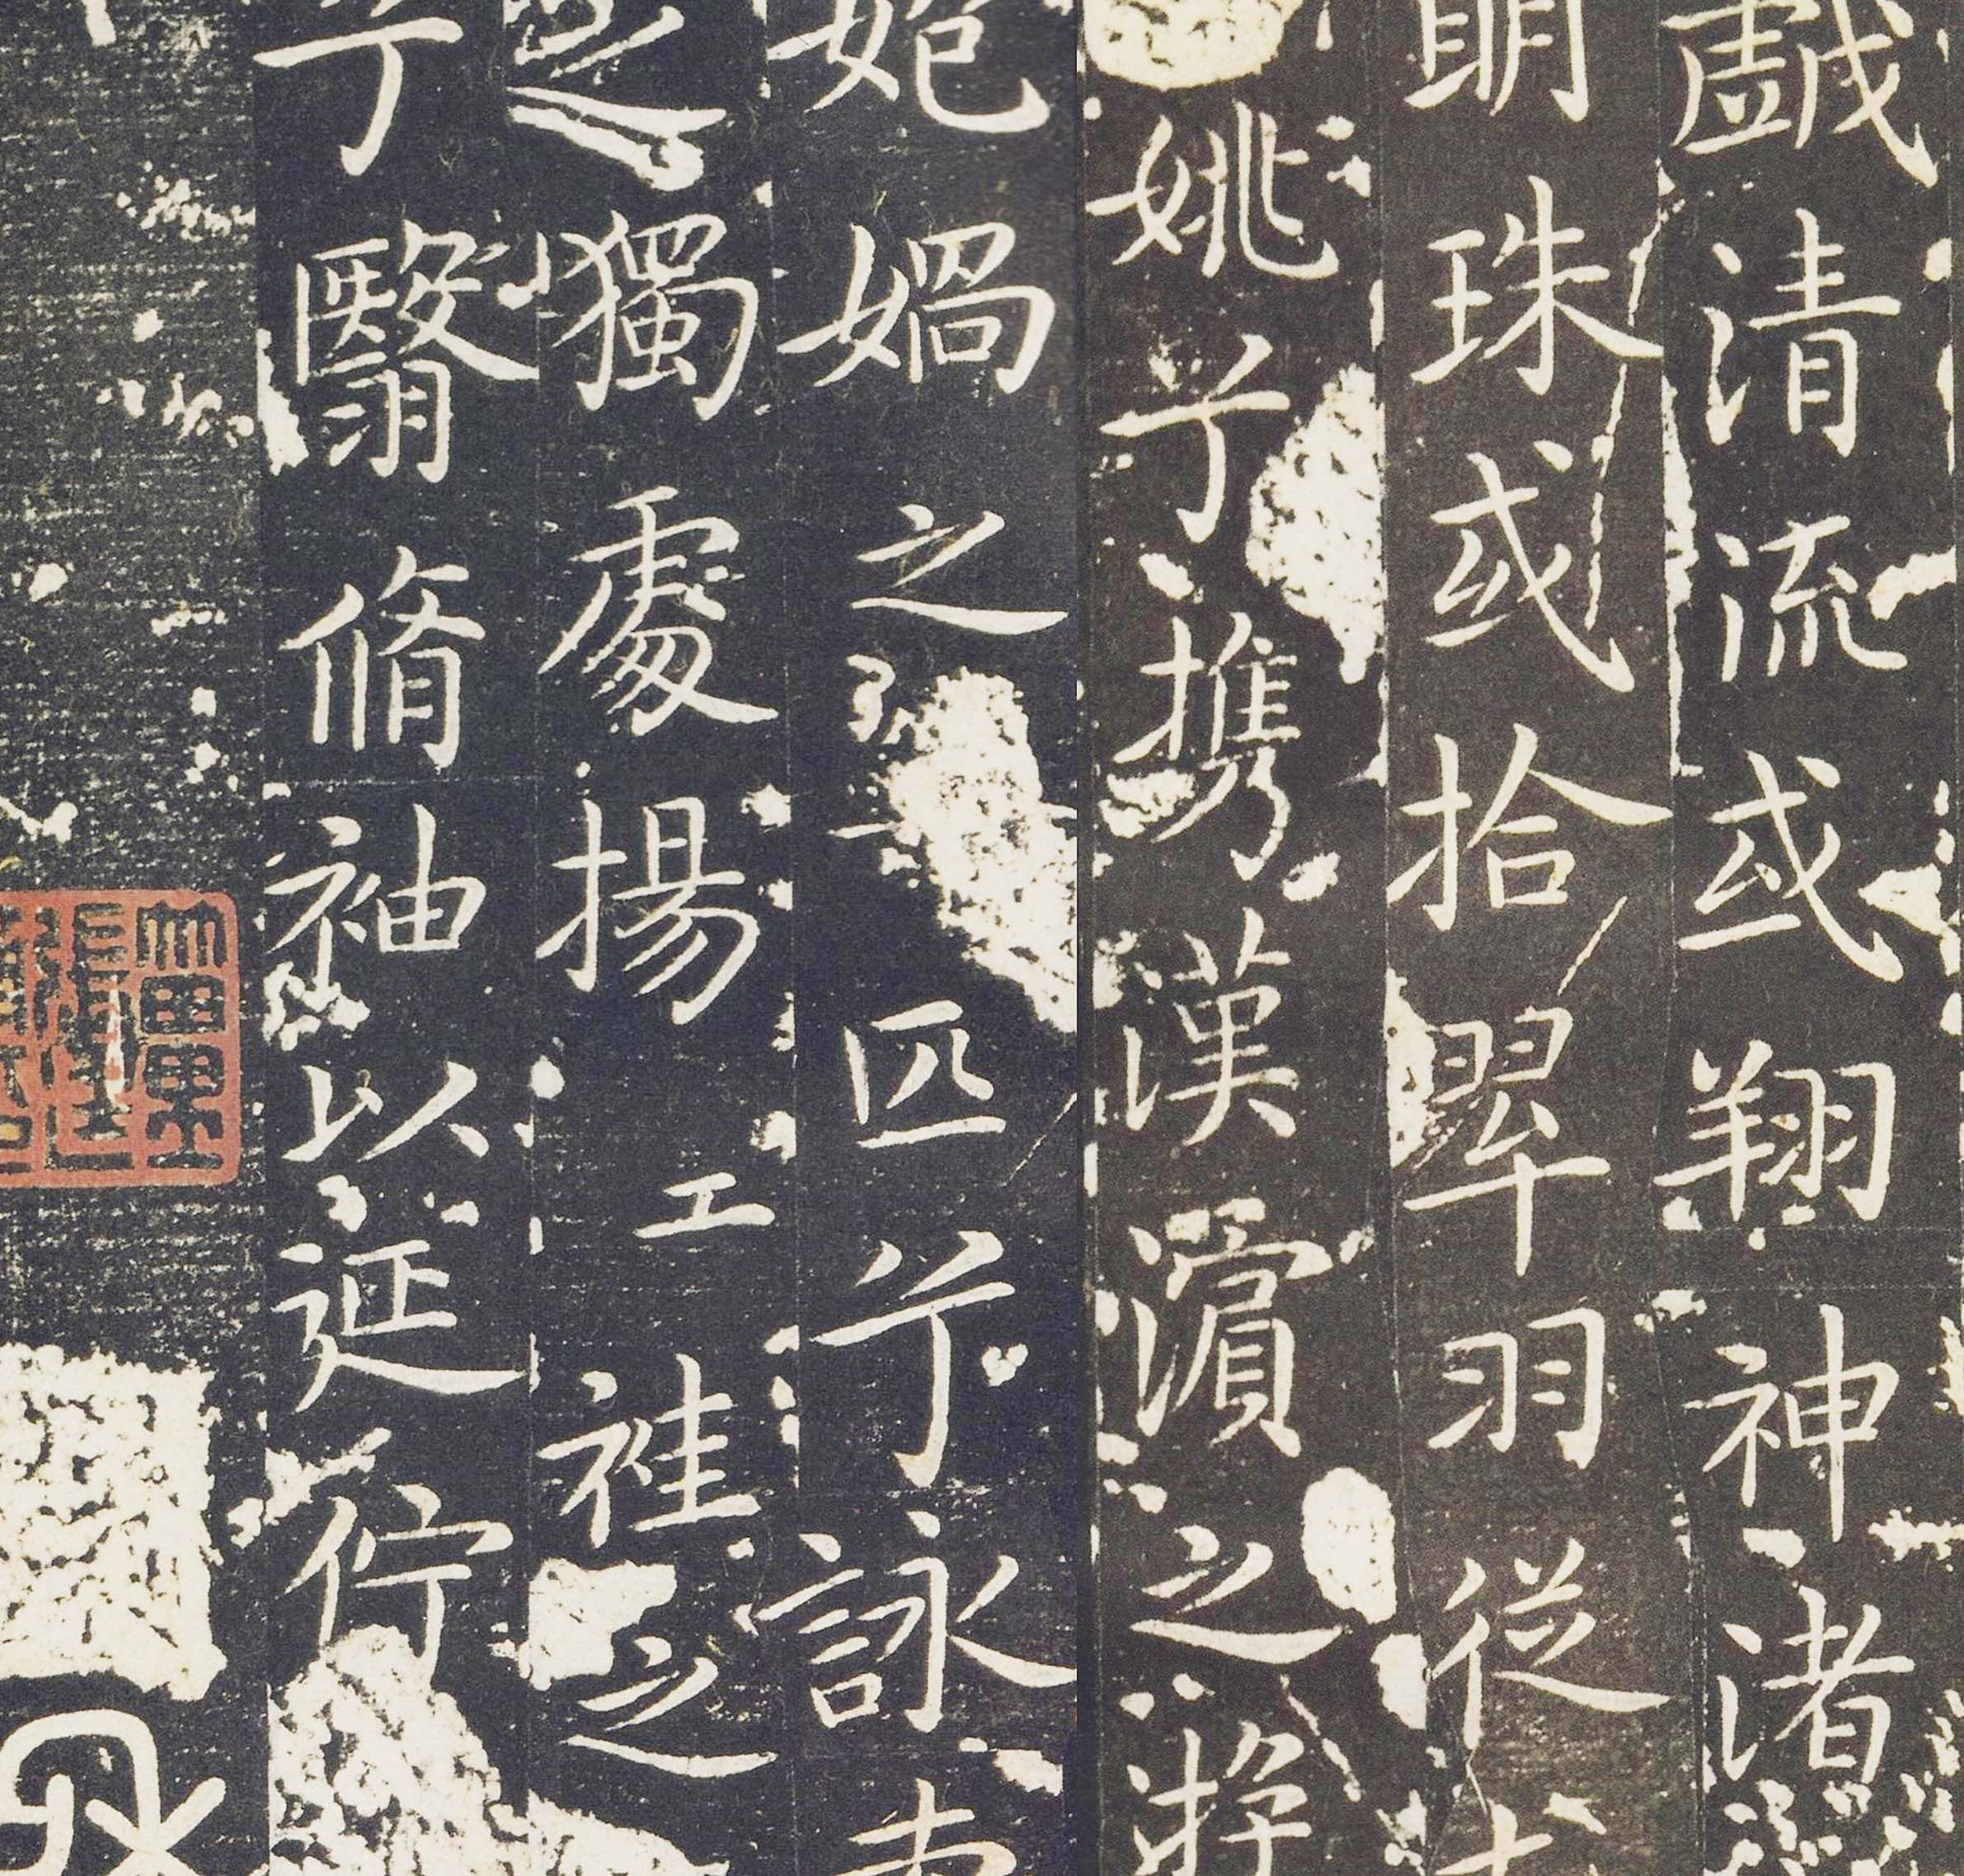 戲清流或翔神渚
明珠或拾翠羽從
姚兮携漢濱之游
㚿媧之匹兮詠
之獨處揚袿之
兮翳脩袖以延佇